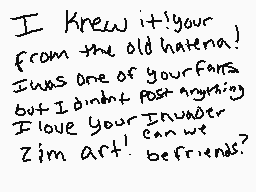 I Knew it! your
from the old hatena!
I was one of your fans
but I didn't post anything
I love your Invader
Zim art! can we
be friends?